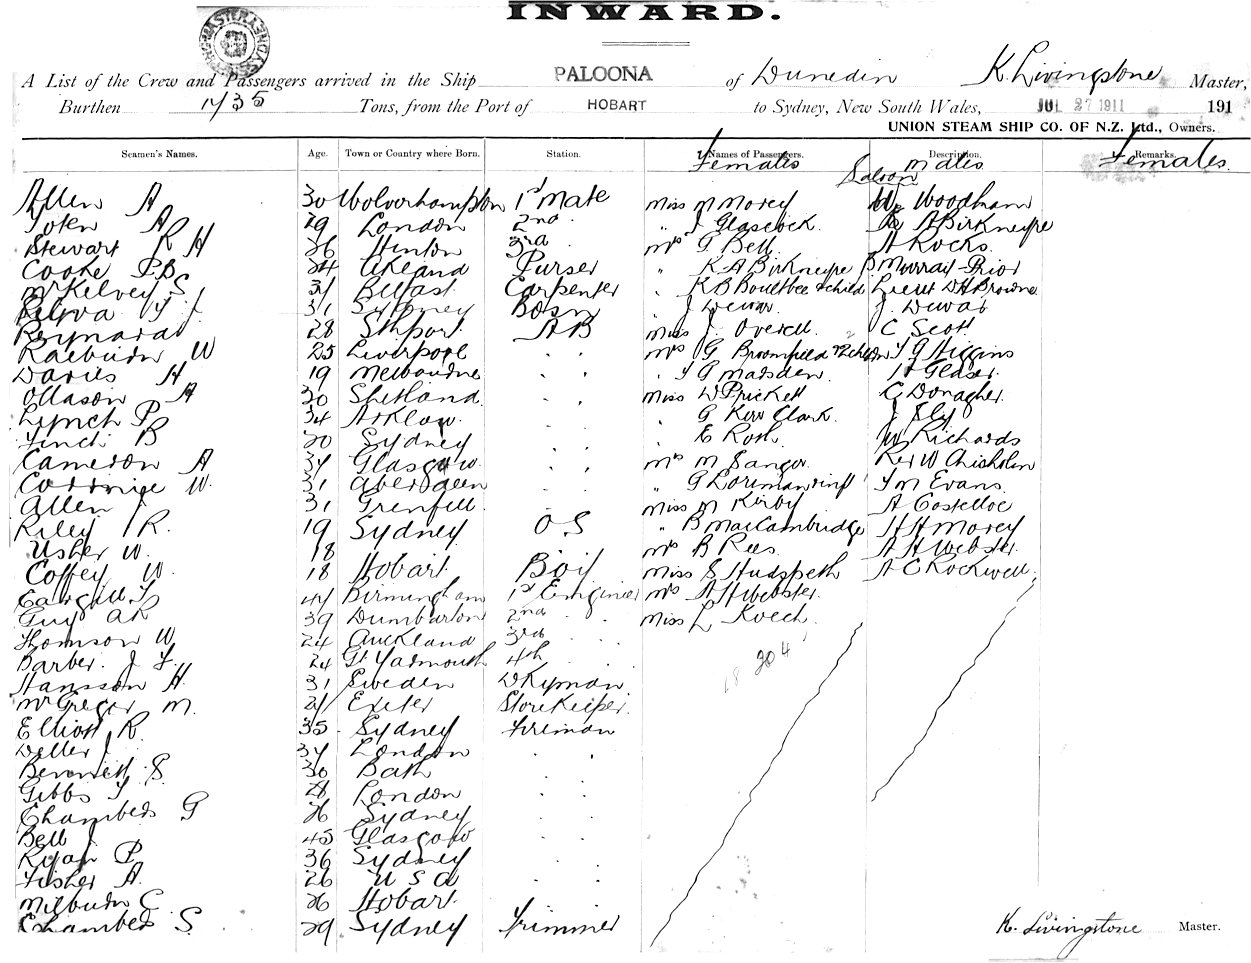 INWARD.
A List of the Crew and Passengers arrived in the Ship PALOONA of Dunedin K. Livingstone Master,
Burthen 1435 Tons, from the Port of HOBART to Sydney, New South Wales, JUL 27 1911 191
UNION STEAM SHIP CO. OF N.Z. Ltd., Owners.
Seamen's Names. Age. Town or Country where Born. Station. Names of Passengers. Description. Remarks.
Females Saloon Males Females
Allen A 30 Wolverhampton 1st Mate Miss M Morey W. Woodham
A 29 London 2nd " J Glascock A Birkmyre
Stewart R H 26 Hinton 3rd Mrs G Bell A Rocks.
Cooke P.B. 24 Purser " K A Birkmyre Murray-Prior
McKelvey S. 31 Belfast Carpenter " K B Boultbee & child Lieut D H Browne
31 Sydney Bosn " J Dewar J. Dewar
28 Sthport A B Miss J. Overell C Scott
Raeburn W 25 Liverpool " " Mrs G Broomfield & 2 children G Higgins
Davies H 19 Melbourne " " " G Madsden Glaser
Ollason A 30 Shetland " " Miss W Prickett C Donagher
Lynch P 34 Arklow " " " G Kerr Clark J Sly
Finch B 20 Sydney " " " E Rosh W Richards
Cameron A 34 Glasgow " " Mrs M Sanger Rev W Chisholm
W. 31 Aberdeen " " " G M Evans
Allen J 31 Grenfell " " Miss M Kirby A Costelloe
Riley R. 19 Sydney O S " B MacCambridge H H Morey
Usher W. 18 Mrs B Rees A H Webster
Coffey W. 18 Hobart Boy Miss S Hudspeth A C Rockwell
44 Birmingham 1st Engineer Mrs A H Webster
Guy A R 39 Dumbarton 2nd " Miss L Koech
Thomson W 24 Auckland 3rd "
Barber. J F. 24 Gt Yarmouth 4th "
Hansson H. 31 Sweden DKyman
McGregor M. 21 Exeter StoreKeeper
Elliott R. 35 Sydney Fireman
Weller J 34 London " "
Bennett S 30 Bath " "
Gibbs 28 London " "
Chambers G 26 Sydney " "
Bell J. 45 Glasgow " "
Ryan P 36 Sydney " "
Fisher A. 26 U S A " "
Milburn C 26 Hobart " "
Chambers S. 29 Sydney Trimmer K. Livingstone Master.